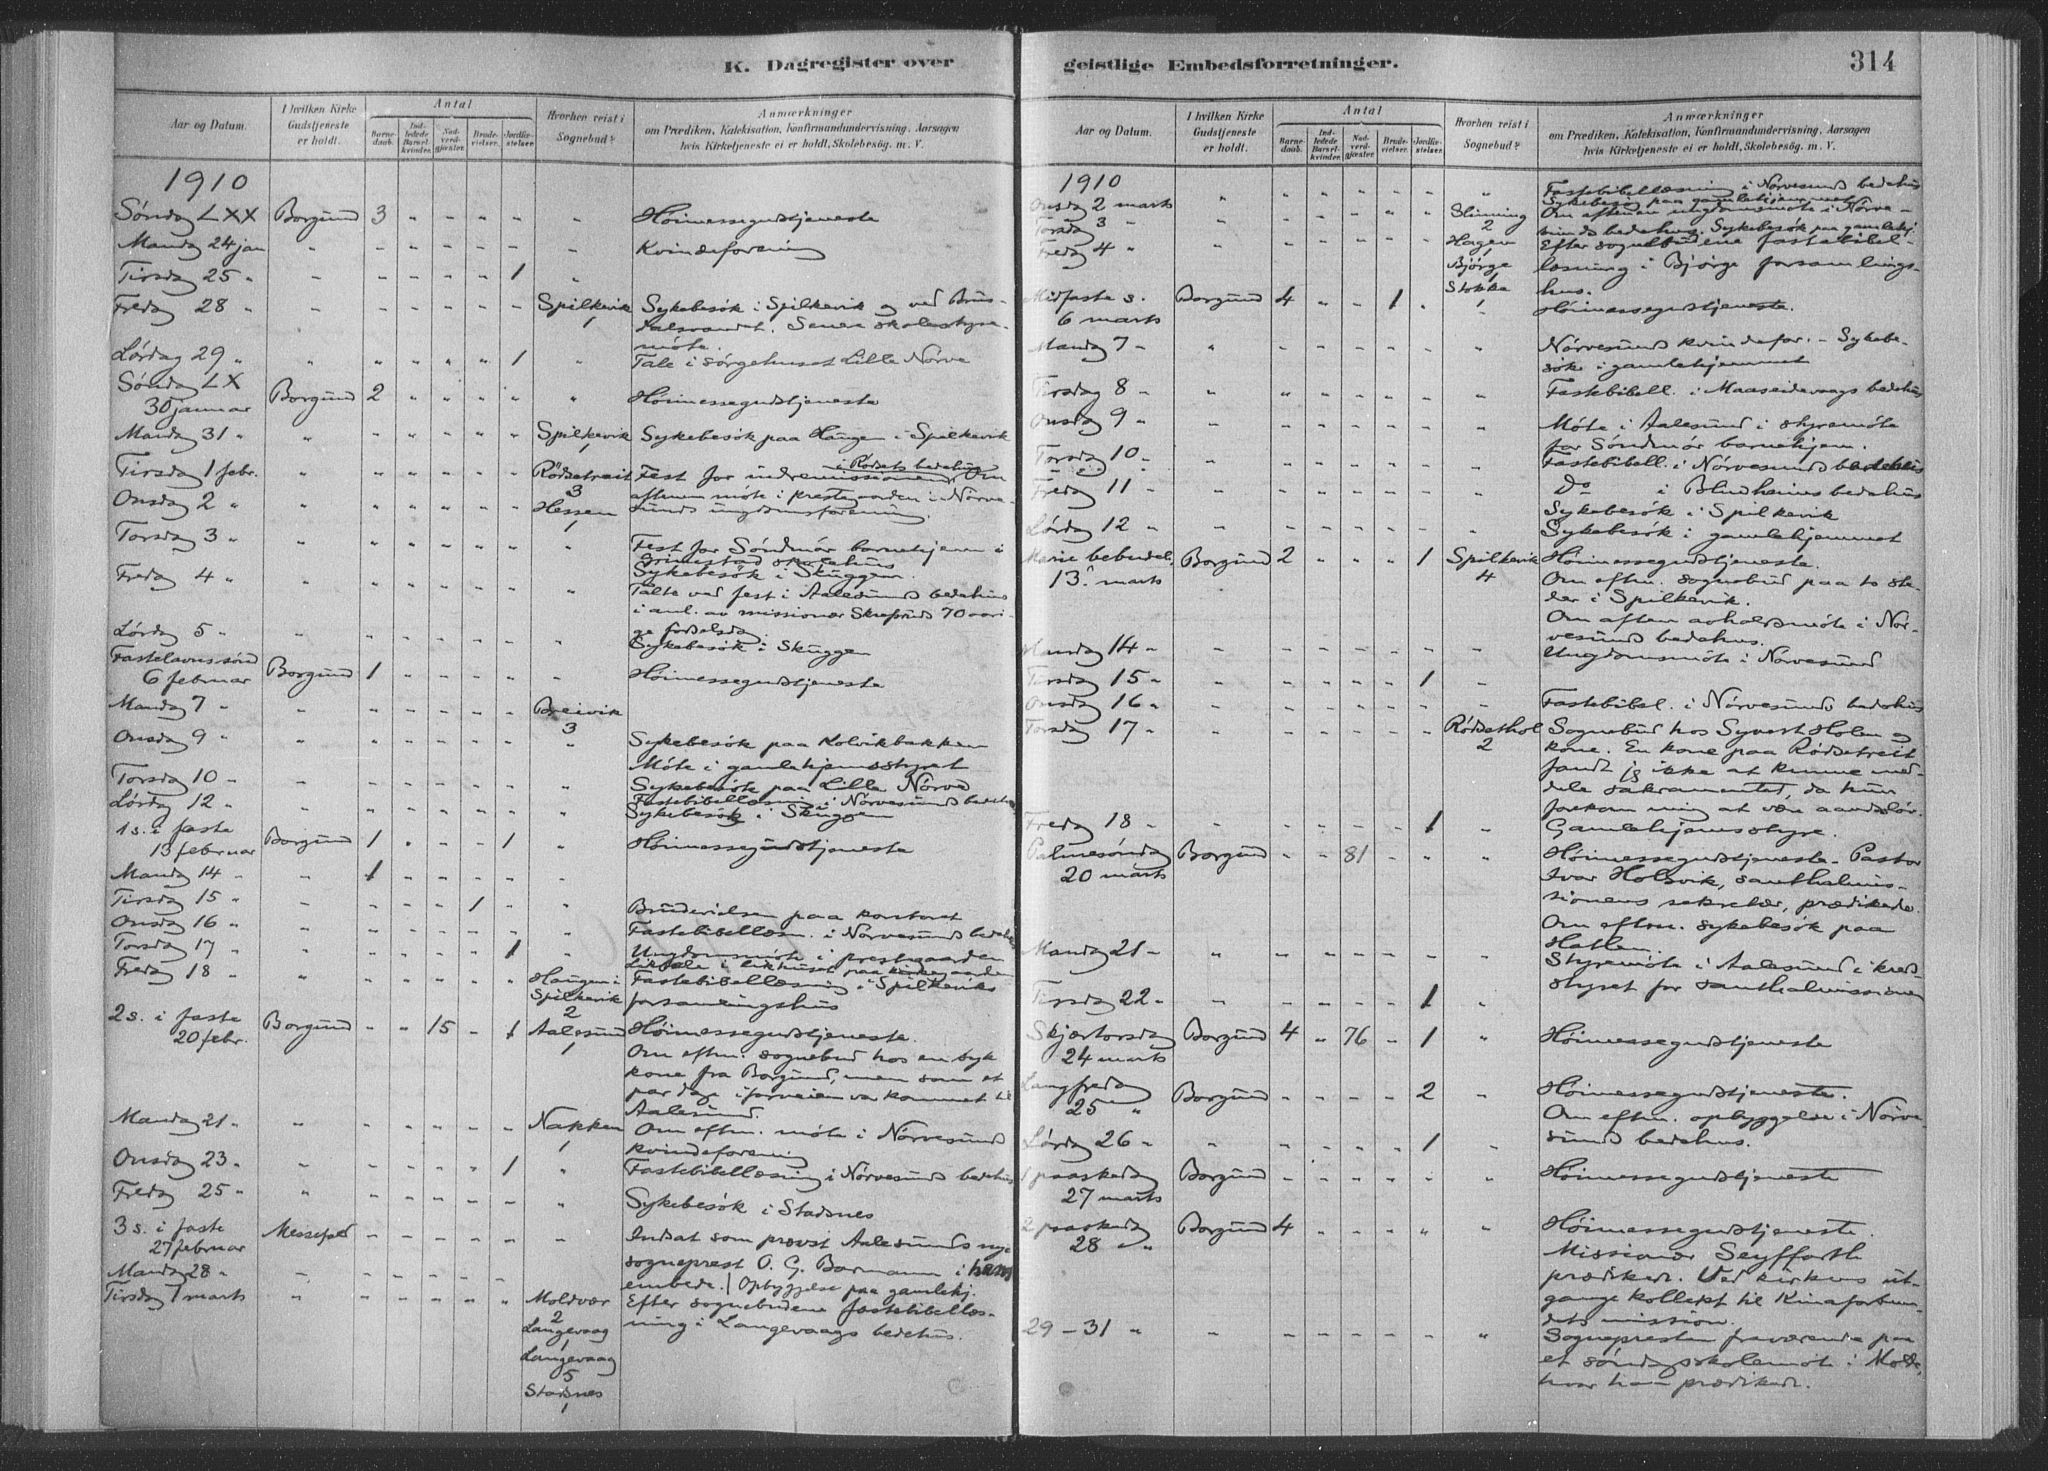 K. Dagregister over
Aar og Datum.
I hvilken Kirke Gudstjeneste er holdt.
Antal
Barnedaab.
Indledede Barselkvinder.
Nadverdgjæster.
Brudevielser.
Jordfæstelser.
Hvorhen reist i Sognebud?
Anmærkninger
om Prædiken, Katekisation, Konfirmandundervisning. Aarsagen
hvis Kirketjeneste ei er holdt, Skolebesög. m. V.
1910
Søndag LXX Borgund 3 " - - - " Høimessegudstjeneste
Mandag 24 jan " - - - - - - Kvindeforening
Tirsdag 25 " - - - - - 1 "
Fredag 28 " - - - - - - Spilkevik Sykebesök i Spilkevik og ved Brus-
1 dalsvandet. Senere skolestyre-
möte.
Lørdag 29 " " " " " " 1 " Tale i sørgehuset Lille Nørve
Søndag LX
30 januar Borgund 2 " " " " " Høimessegudstjeneste
Mandag 31 " " - - - - - Spilkevik Sykebesök paa Haugen i Spilkevik
1
i Rødsets bedehus
Tirsdag 1 febr. " " " - - - Rødsetreit Fest for indremissionen. Om
3 aftenen möte i prestegaarden i Nørve-
Onsdag 2 " " - - - - - Hessen sunds ungdomsforening.
1
Torsdag 3 " " - - - - - " Fest for Söndmör barnehjem i
Grimestad skolehus
Fredag 4 " " - - - - - " Sykebesök i Skuggen.
Talte ved fest i Aalesunds bedehus
i anl. av missionær Skrefsruds 70 aari-
ge fødselsdag
Lørdag 5 " " - - - - - " Sykebesök i Skuggen
Fastelavnssönd
6 februar Borgund 1 - - - - " Høimessegudstjeneste
Mandag 7 " " - - - - - Breivik
3
Onsdag 9 " " - - - - - " Sykebesök paa Kolvikbakken
Möte i gamlehjemsstyret
Torsdag 10 " - - - - - - " Sykebesök paa Lille Nørve
Fastebibellæsning i Nørvesunds bedehus
Lørdag 12 " " - - - - - " Sykebesök i Skuggen
1 s. i faste
13 februar Borgund 1 - - - 1 " Høimessegudstjeneste
Mandag 14 " " 1 - - - - -
Tirsdag 15 " " - - - 1 - " Brudevielsen paa kontoret
Onsdag 16 " " - - - - - " Fastebibellæsn. i Nørvesunds bedehus
Torsdag 17 " " - - - - 1 " Ungdomsmöte i prestegaarden
Liktale i likhuset paa kirkegaarden
Fredag 18 " " - - - - - Haugen i Fastebibellæsning i Spilkeviks
Spilkevik forsamlingshus
2
2 s. i faste
20 febr. Borgund - - 15 - 1 Aalesund Høimessegudstjeneste.
1 Om eftm. sognebud hos en syk
kone fra Borgund, men som et
par dage i forveien var kommet til
Aalesund.
Mandag 21 " " - - - - - Nakken Om eftm. möte i Nørvesunds
1 kvindeforening
Onsdag 23 " " - - - - 1 " Fastebibellæsning i Nørvesunds bedehus
Fredag 25 " " - - - - - " Sykebesök i Stadsnes
3 s. i faste
27 februar Messefald - - - - - " Indsat som provst Aalesunds nye
sogneprest O. G. Barmann i hans
Mandag 28 " - - - - - - " embede. / Opbyggelse paa gamlehj.
Tirsdag 1 marts " " - - - " Moldvær Efter sognebudene fastebibellæs-
2 ning i Langevaags bedehus.
Langevaag
1
Langevaag
5
Stadsnes
1
geistlige Embedsforretninger.
314
Aar og Datum.
I hvilken Kirke Gudstjeneste er holdt.
Antal
Barnedaab.
Indledede Barselkvinder.
Nadverdgjæster.
Brudevielser.
Jordfæstelser.
Hvorhen reist i Sognebud?
Anmærkninger
om Prædiken, Katekisation, Konfirmandundervisning. Aarsagen
hvis Kirketjeneste ei er holdt, Skolebesög. m. V.
1910
Onsdag 2 marts " - - - - - " Fastebibellæsning i Nørvesunds bedehus
Sykebesøg paa gamlehjemmet
Torsdag 3 " " - - - - - Slinning Om aftenen ungdomsmöte i Nørve-
2 sunds bedehus. Sykebesök paa gamlehj.
Fredag 4 " " - - - - - Hagen Efter sognebudene fastebibel-
1
Bjørge læsning i Bjørge forsamlings-
1
Stokke hus.
1
Midfaste s.
6 marts Borgund 4 " " 1 . Høimessegudstjeneste.
Mandag 7 " " - - - - - - Nørvesunds kvindefor. - Sykebe-
sök i gamlehjemmet
Tirsdag 8 " " " - - - - " Fastebibell. i Maaseidevaags bedehus
Onsdag 9 " " - - - - - " Möte i Aalesund i styremöte
for Söndmör barnehjem.
Torsdag 10 " " - - - - - " Fastebibell. i Nørvesunds bedehus
Fredag 11 " " - - - - - " Do i Blindheims bedehus
Sykebesök i Spilkevik
Lørdag 12 " " - - - - - " Sykebesök i gamlehjemmet
Marie bebudel.
13 marts Borgund 2 " " " 1 Spilkevik Høimessegudstjeneste.
4 Om eftm. sognebud paa to ste-
der i Spilkevik.
Om aften avholdsmöte i Nør-
vesunds bedehus.
Mandag 14 " " - - - - - - Ungdomsmöte i Nørvesund
Tirsdag 15 " " - - - - 1 -
Onsdag 16 " " - - - - - - Fastebibel. i Nørvesunds bedehus
Torsdag 17 " " - - - - - Rødsethol Sognebud hos Syvert Holen og
2 kone. En kone paa Rødsetreit
fandt jeg ikke at kunne med-
dele sakramentet, da hun
forekom mig at være aandsslöv.
Fredag 18 " - - - - - 1 " Gamlehjemsstyre.
Palmesöndag
20 marts Borgund - - 81 - " " Høimessegudstjeneste. Pastor
Ivar Holsvik, santhalmis-
sionens sekretær, prædikede.
Om eftm. sykebesök paa
Hatlen.
Mandag 21 " " - - - - - " Styremöte i Aalesund i kreds-
styret for santhalmissionen
Tirsdag 22 " " - - - - 1 "
Skjærtorsdag
24 marts Borgund 4 " 76 - 1 " Høimessegudstjeneste
Langfredag
25 " Borgund - - - - 2 " Høimessegudstjeneste.
Om eftm. opbyggelse i Nørve-
sunds bedehus.
Lørdag 26 " " - - - - 1 "
1 paaskedag
27 marts Borgund - - - - - " Høimessegudstjeneste
2 paaskedag
28 " Borgund 4 - - - " " Høimessegudstjeneste.
Missionær Seyffarth
prædiket. Ved kirkens ut-
gange kollekt til Kinaforbun-
dets mission.
29 - 31 " " - - - - - " Sognepresten fraværende paa
et söndagsskolemöte i Molde,
hvor han prædiket.